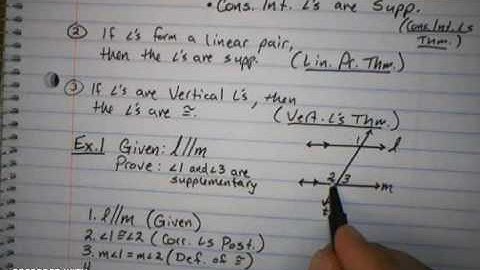 • Cons. Int. ∠'s are Supp.
(Cons. Int. ∠s Thm.)
② If ∠'s form a linear pair,
then the ∠'s are supp. (Lin. Pr. Thm.)
③ If ∠'s are Vertical ∠'s, then
the ∠'s are ≅. (Vert. ∠'s Thm.)
Ex.1 Given: l//m
Prove: ∠1 and ∠3 are
supplementary
1
l
2 3
m
1. l//m (Given)
2. ∠1≅∠2 (Corr. ∠s Post.)
3. m∠1=m∠2 (Def. of ≅)